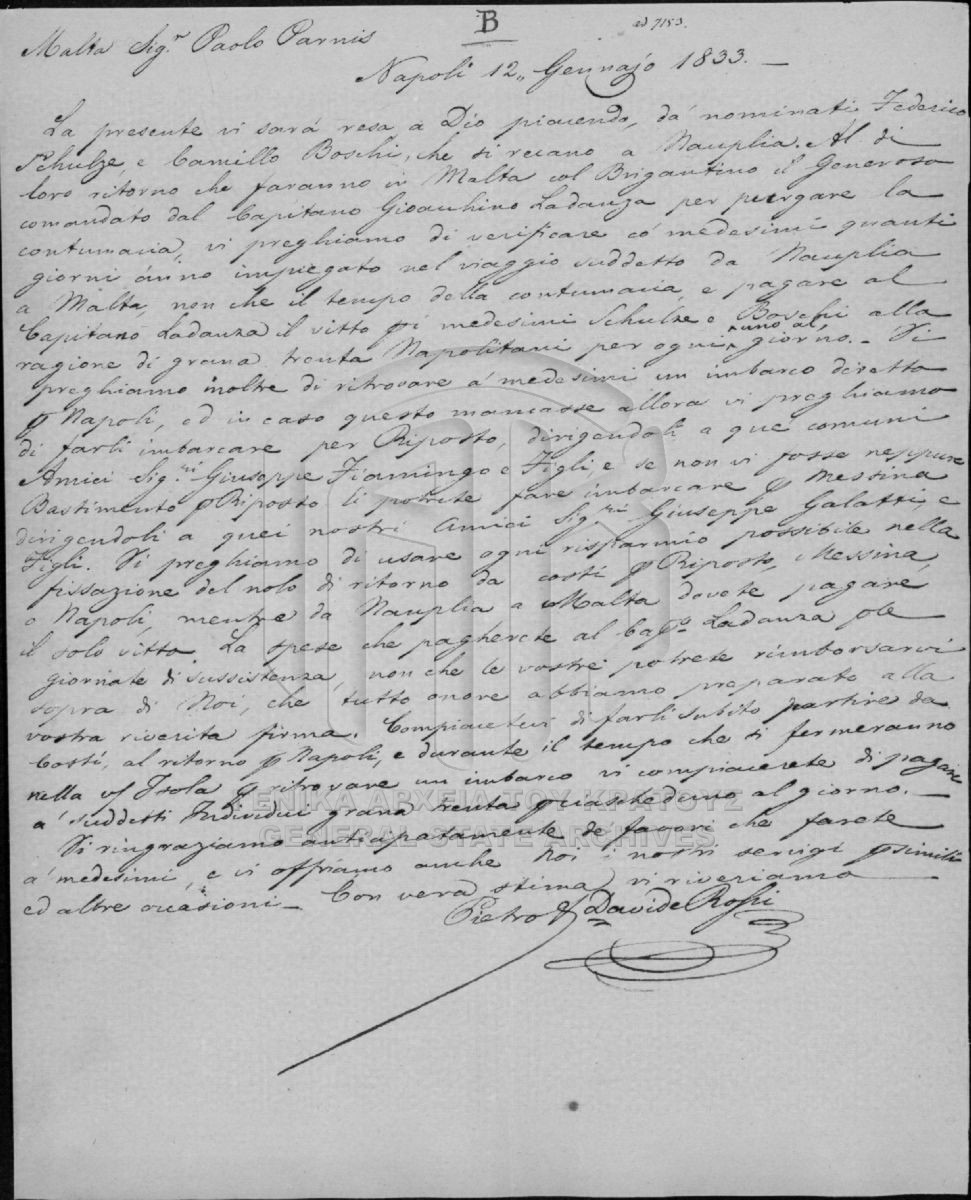 B
ad 7153.
Malta Sig.r Paolo Parnis
Napoli 12,, Gennajo 1833. —
La presente vi sará resa, a Dio piacendo, dá nominati Federico
Schulze, e Camillo Boschi, che si recano a Nauplia. Al di
loro ritorno che faranno in Malta col Brigantino il Generoso
comandato dal Capitano Gioacchino Ladanza per purgare la
contumacia, vi preghiamo di verificare có medesimi quanti
giorni ánno impiegato nel viaggio suddetto da Nauplia
a Malta, non che il tempo della contumacia, e pagare al
Capitano Ladanza il vitto pi medesimi Schulze e Boschi alla
ragione di grana trenta Napolitani per ogni uno al giorno. — Vi
preghiamo inoltre di ritrovare a' medesimi un imbarco diretto
p Napoli, ed in caso questo mancasse allora vi preghiamo
di farli imbarcare per Riposto, dirigendoli a que comuni
Amici Sig.ri Giuseppe Fiamingo e Figli, e se non vi fosse neppure
Bastimento p Riposto li potrete fare imbarcare p Messina
dirigendoli a quei nostri Amici Sig.ri Giuseppe Galatti, e
Figli. Vi preghiamo di usare ogni risparmio possibile nella
fissazione del nolo di ritorno da costí p Riposto, Messina,
o Napoli, mentre da Nauplia a Malta dovete pagare
il solo vitto. La spese che pagherete al Cap.o Ladanza ple
giornate di sussistenza, non che le vostre potrete rimborsarvi
sopra di Noi, che tutto onore abbiamo preparato alla
vostra riverita firma. Compiacetevi di farli subito partire da
Costí, al ritorno p Napoli, e durante il tempo che si fermeranno
nella vs Isola p ritrovare un imbarco vi compiacerete di pagare
a' suddetti Individui grana trenta p ciascheduno al giorno. —
Vi ringraziamo anticipatamente de favori che farete
a' medesimi, e vi offriamo anche Noi i nostri servigi p simili
ed altre occasioni — Con vera stima vi riveriamo
Pietro & Davide Rossi
ΓΕΝΙΚΑ ΑΡΧΕΙΑ ΤΟΥ ΚΡΑΤΟΥΣ
GENERAL STATE ARCHIVES